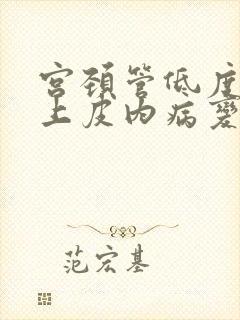 宫颈管低度
上皮内病变
范宏基